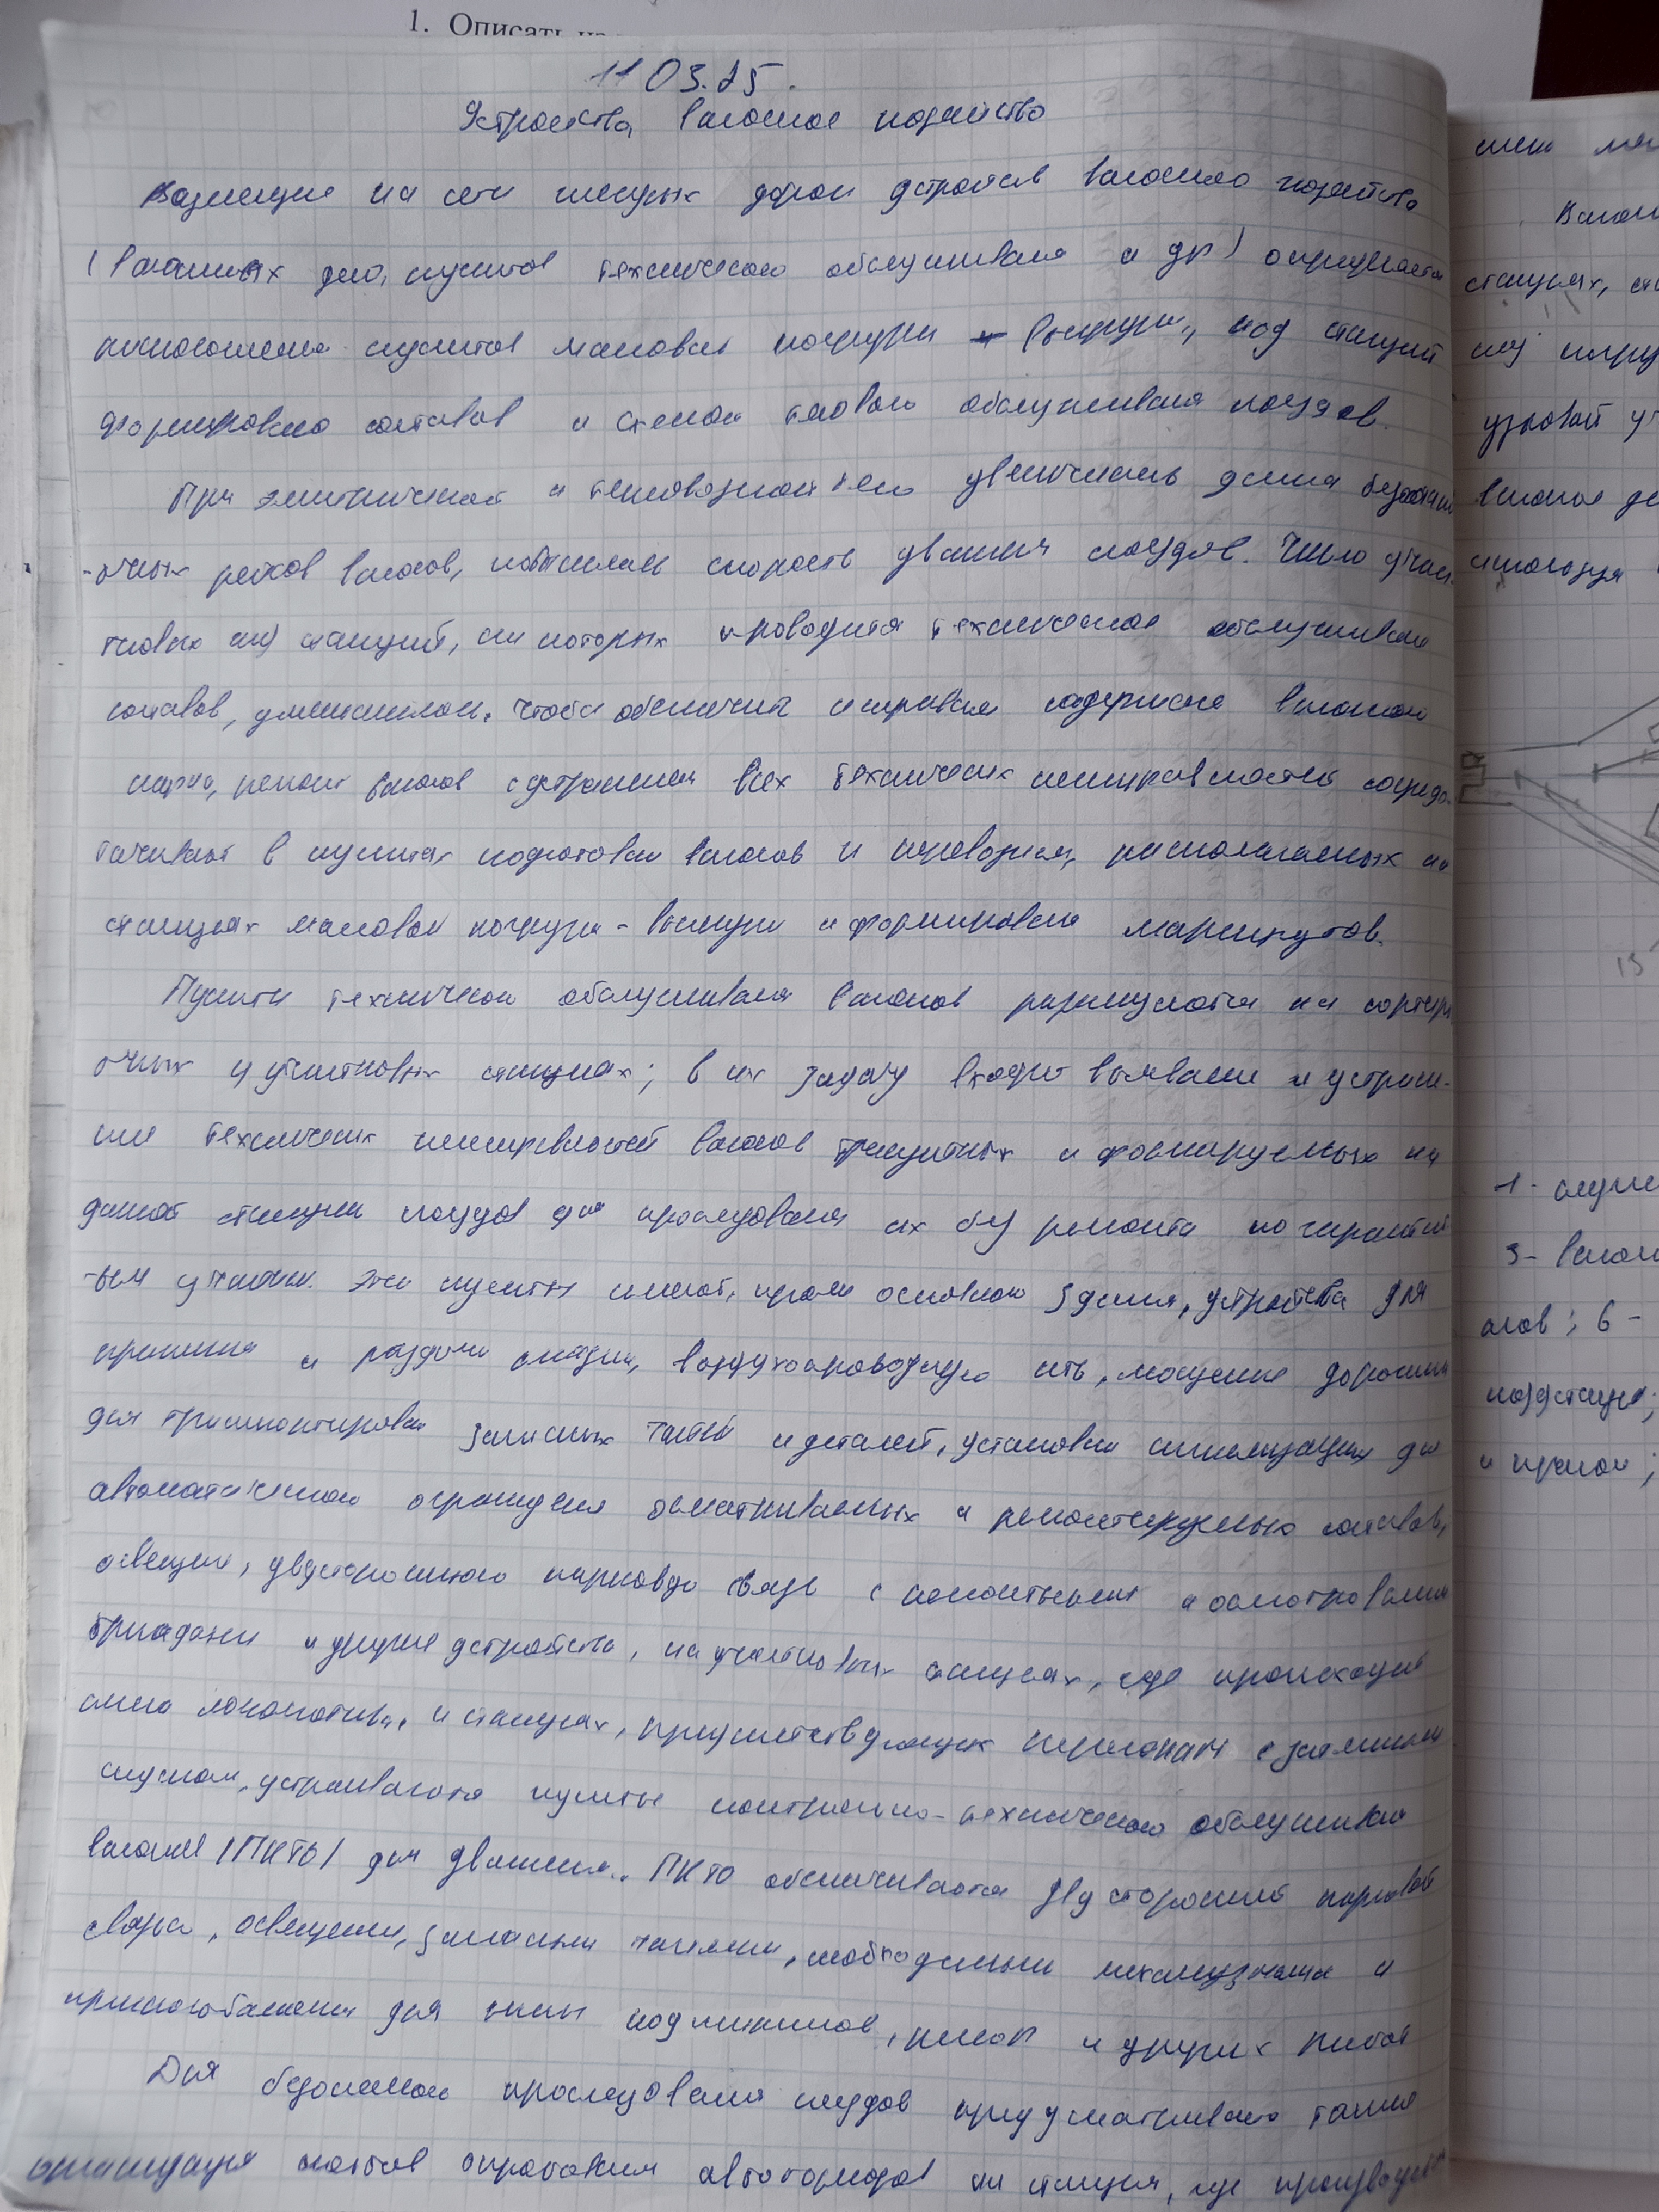 1. Описать
11 03.25.
Устроиства вагоное хозяйство
Размещие на сети желузых дорои устройств вагонного хозяйства
(вагоных депо, пунктов технического обслуживаня и др) определяется
расположением пунктов массовой погрузки - выгрузки, ж/д станций
формировано составов и схемой тягового обслуживаня поездов.
При электрической и тепловозной тяго увеличелась длина безостан
-очных рейсов вагонов, повысилась скорость движеня поездов. Число участ
тковых ж/д станций, на которых проводится техническое обслуживане
составов, уменьшилось. Чтобы обеспечить исправное содержане вагоного
парка, ремонт вагонов с устранением всех технических неисправностей сосредо
тачивают в пунктах подготовки вагонов к перевозкам, располагаемых на
станциях массовой погрузки - выгрузки и формирования маршрутов.
Пункты технической обслуживаня вагонов размещуются на сортир
очных и участковых станциях; в их задачу входит выявление и устране-
ние технических неисправностей вагонов транзитных и формируемых на
данной станции поездов для проследования их без ремонта по гарантий
-ым участкам. Эти пункты имеют, кроме основного здания, устройства для
хранения и раздачи смазки, воздухопроводную сеть, мощеные дорожки
для транспортировки запасных частей и деталей, установки сигнализации для
автоматической ограждения осматриваемых и ремонтируемых составов,
освещение, двустороннюю парковую связь с ремонтными и осмотровыми
бригадами и другие устройства, на участковых станциях, где происходит
смена локомотива, и станциях, предшествующих перегонам с затяжным
спуском, устраиваются пункты контрольно-технического обслуживания
вагонов (ПКТО) для движения. ПКТО обеспечивается двусторонней парковой
связью, освещением, запасными частями, необходимыми механизмами и
приспособлениями для смены подшипников, рессор и других работ
Для безопасного проследования поездов предусматривают также
организация постов опробования автотормозов на станция, где производится
смен
Вагон
станциях,
ж/д погру
узловой уч
вагоное де
используя
15
1-
3- вагон
6 -
подстанция;